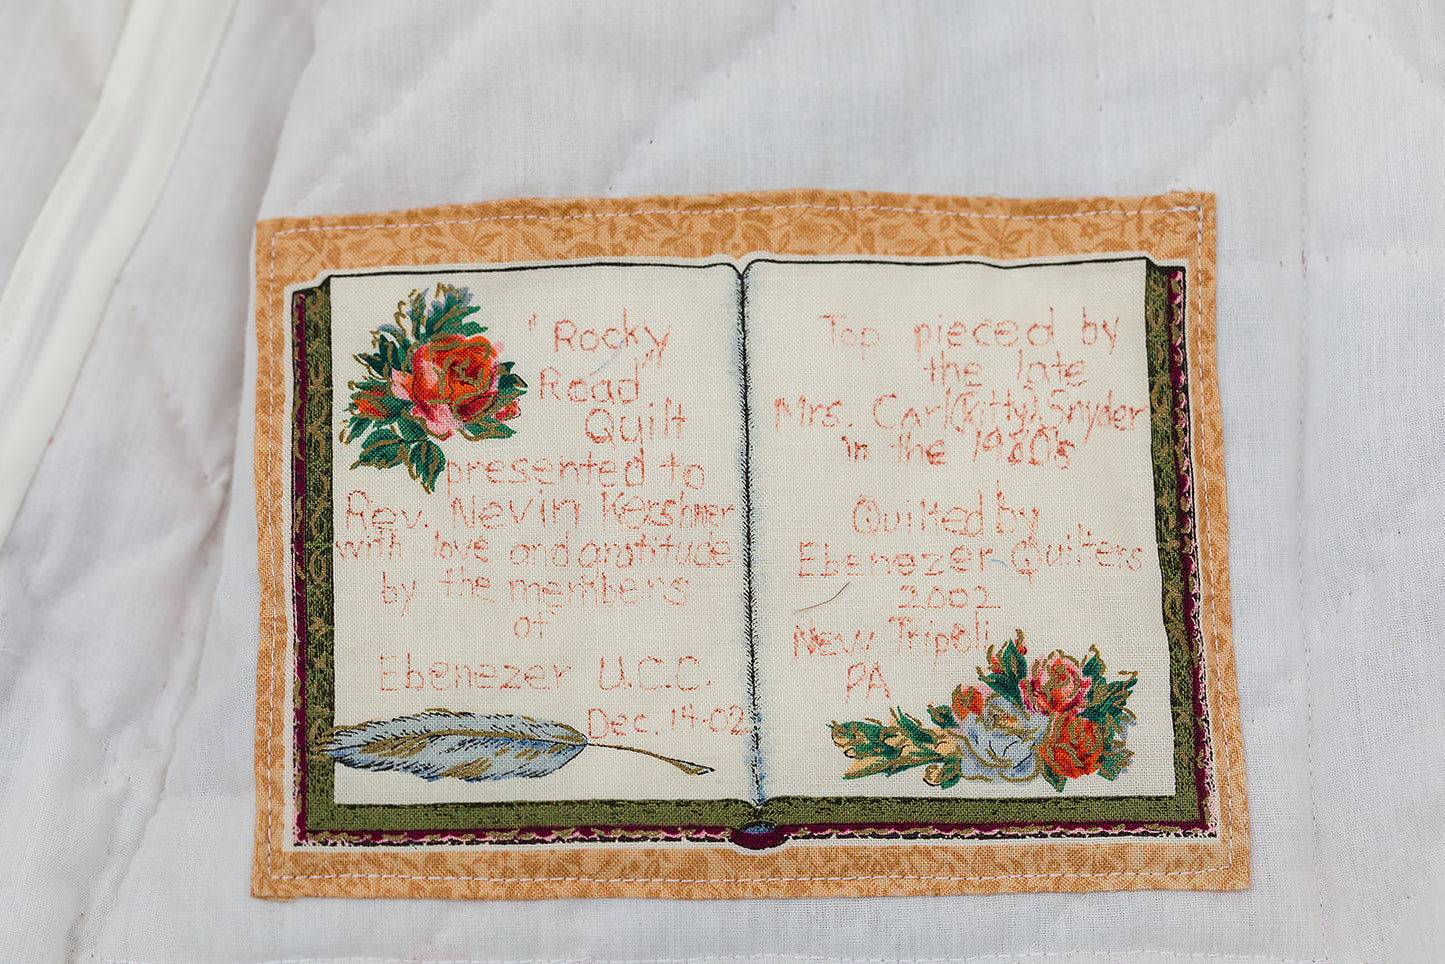 "Rocky
Road"
Quilt
presented to
Rev. Nevin Kershner
with love and gratitude
by the members
of
Ebenezer U.C.C.
Dec. 14-02
Top pieced by
the late
Mrs. Carl (Kitty) Snyder
in the 1980's
Quilted by
Ebenezer Quilters
2002
New Tripoli
PA